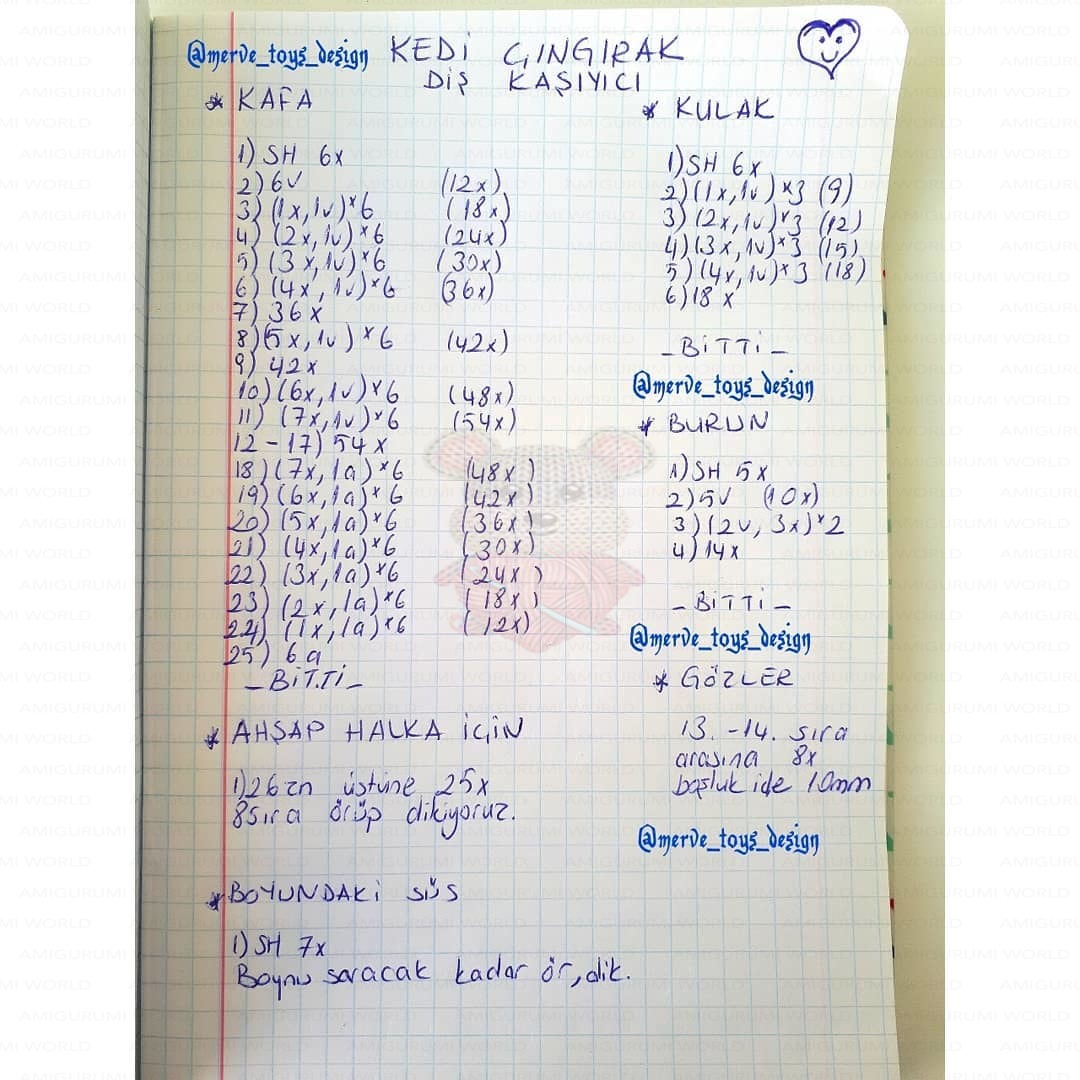 @merve_toys_design KEDİ ÇINGIRAK
DİŞ KAŞIYICI
* KAFA
1) SH 6x
2) 6v (12x)
3) (1x, 1v)*6 (18x)
4) (2x, 1v)*6 (24x)
5) (3x, 1v)*6 (30x)
6) (4x, 1v)*6 (36x)
7) 36x
8) (5x, 1v)*6 (42x)
9) 42x
10) (6x, 1v)*6 (48x)
11) (7x, 1v)*6 (54x)
12-17) 54x
18) (7x, 1a)*6 (48x)
19) (6x, 1a)*6 (42x)
20) (5x, 1a)*6 (36x)
21) (4x, 1a)*6 (30x)
22) (3x, 1a)*6 (24x)
23) (2x, 1a)*6 (18x)
24) (1x, 1a)*6 (12x)
25) 6a
- BİTTİ -
* AHŞAP HALKA İÇİN
1) 26zn üstüne 25x
8sıra örüp dikiyoruz.
* BOYUNDAKİ SÜS
1) SH 7x
Boynu saracak kadar ör, dik.
* KULAK
1) SH 6x
2) (1x, 1v)*3 (9)
3) (2x, 1v)*3 (12)
4) (3x, 1v)*3 (15)
5) (4x, 1v)*3 (18)
6) 18x
- BİTTİ -
@merve_toys_design
* BURUN
1) SH 5x
2) 5v (10x)
3) (2v, 3x)*2
4) 14x
- BİTTİ -
@merve_toys_design
* GÖZLER
13.-14. sıra
arasına 8x
boşluk ide 10mm
@merve_toys_design
AMIGURUMI WORLD